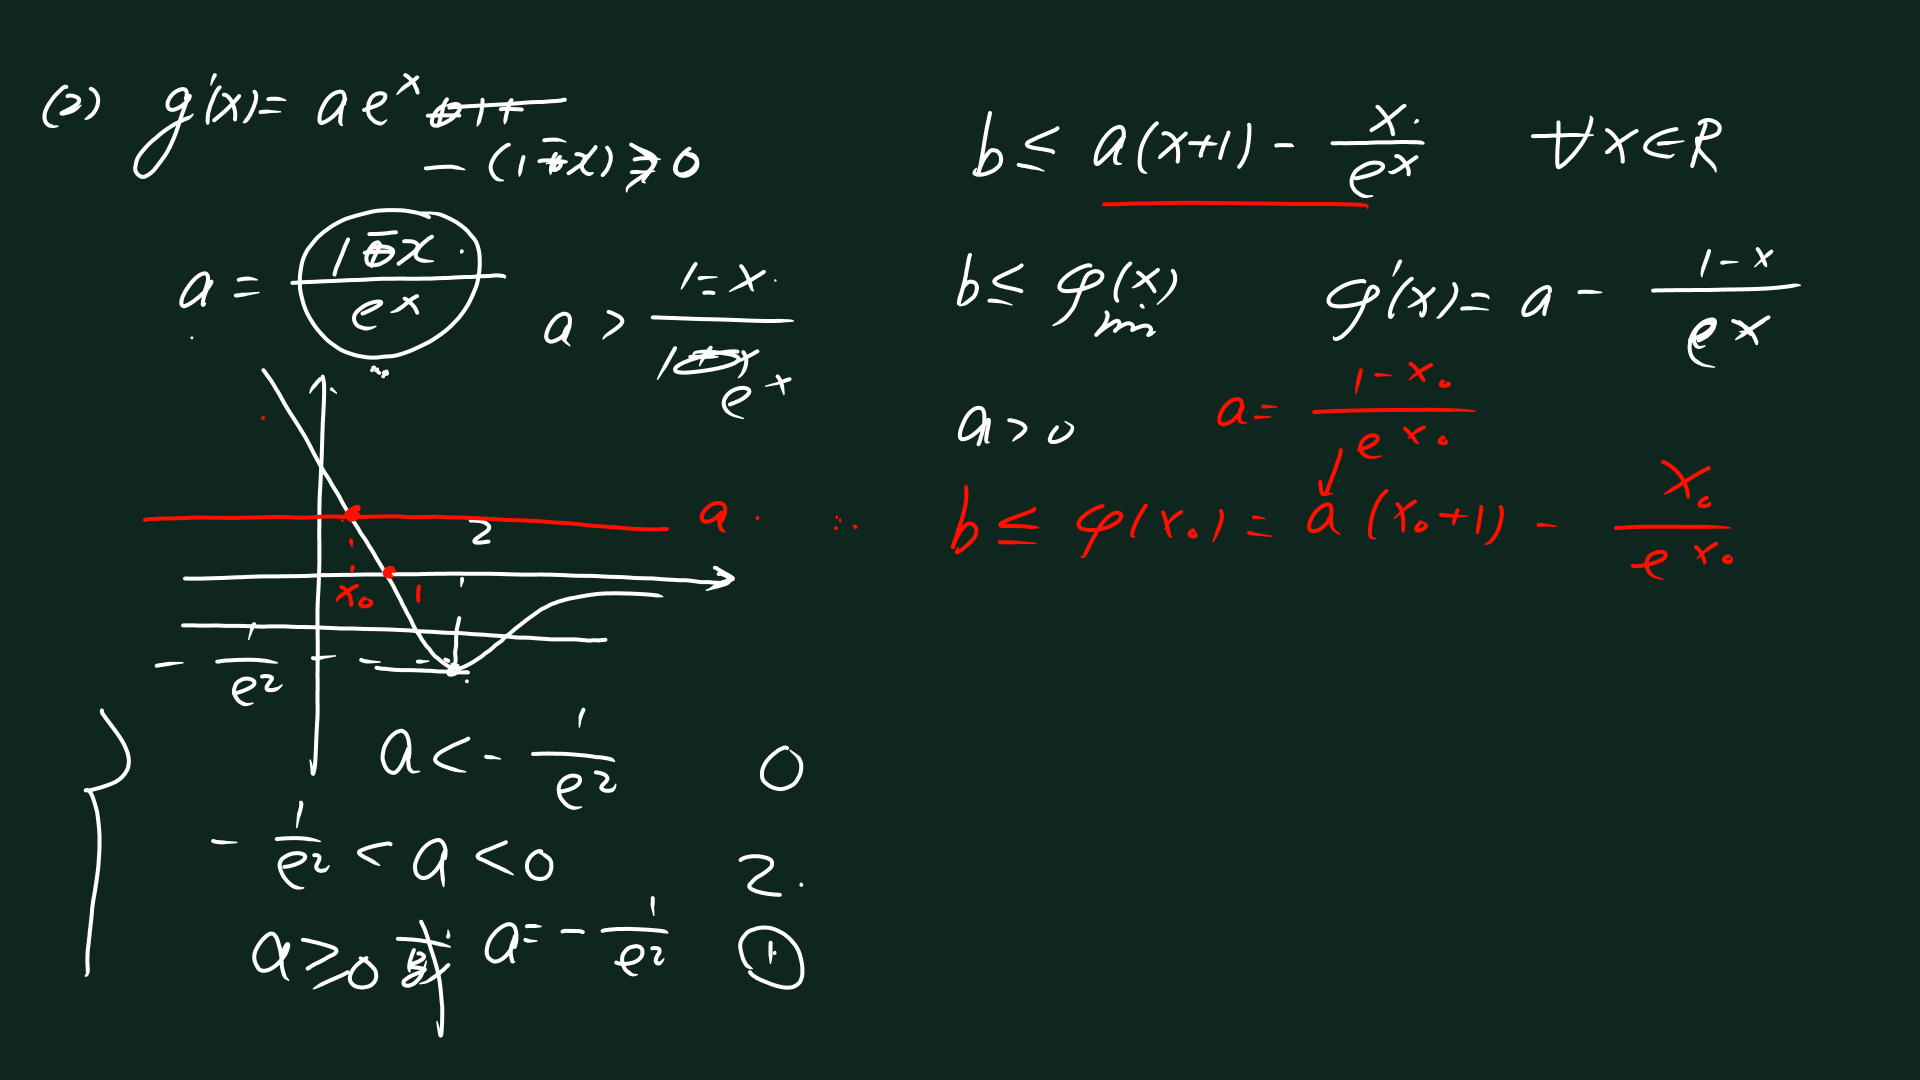 (2) g'(x) = a e^x
- (1 - x) ≥ 0
a = (1 - x) / e^x
a > (1 - x) / e^x
a
2
x₀ 1
- 1/e²
a < - 1/e² 0
- 1/e² < a < 0 2
a ≥ 0 或 a = - 1/e² 1
b ≤ a(x+1) - x/e^x ∀x∈R
b ≤ φ(x)min φ'(x) = a - (1-x)/e^x
a > 0 a = (1-x₀)/e^x₀
b ≤ φ(x₀) = a(x₀+1) - x₀/e^x₀